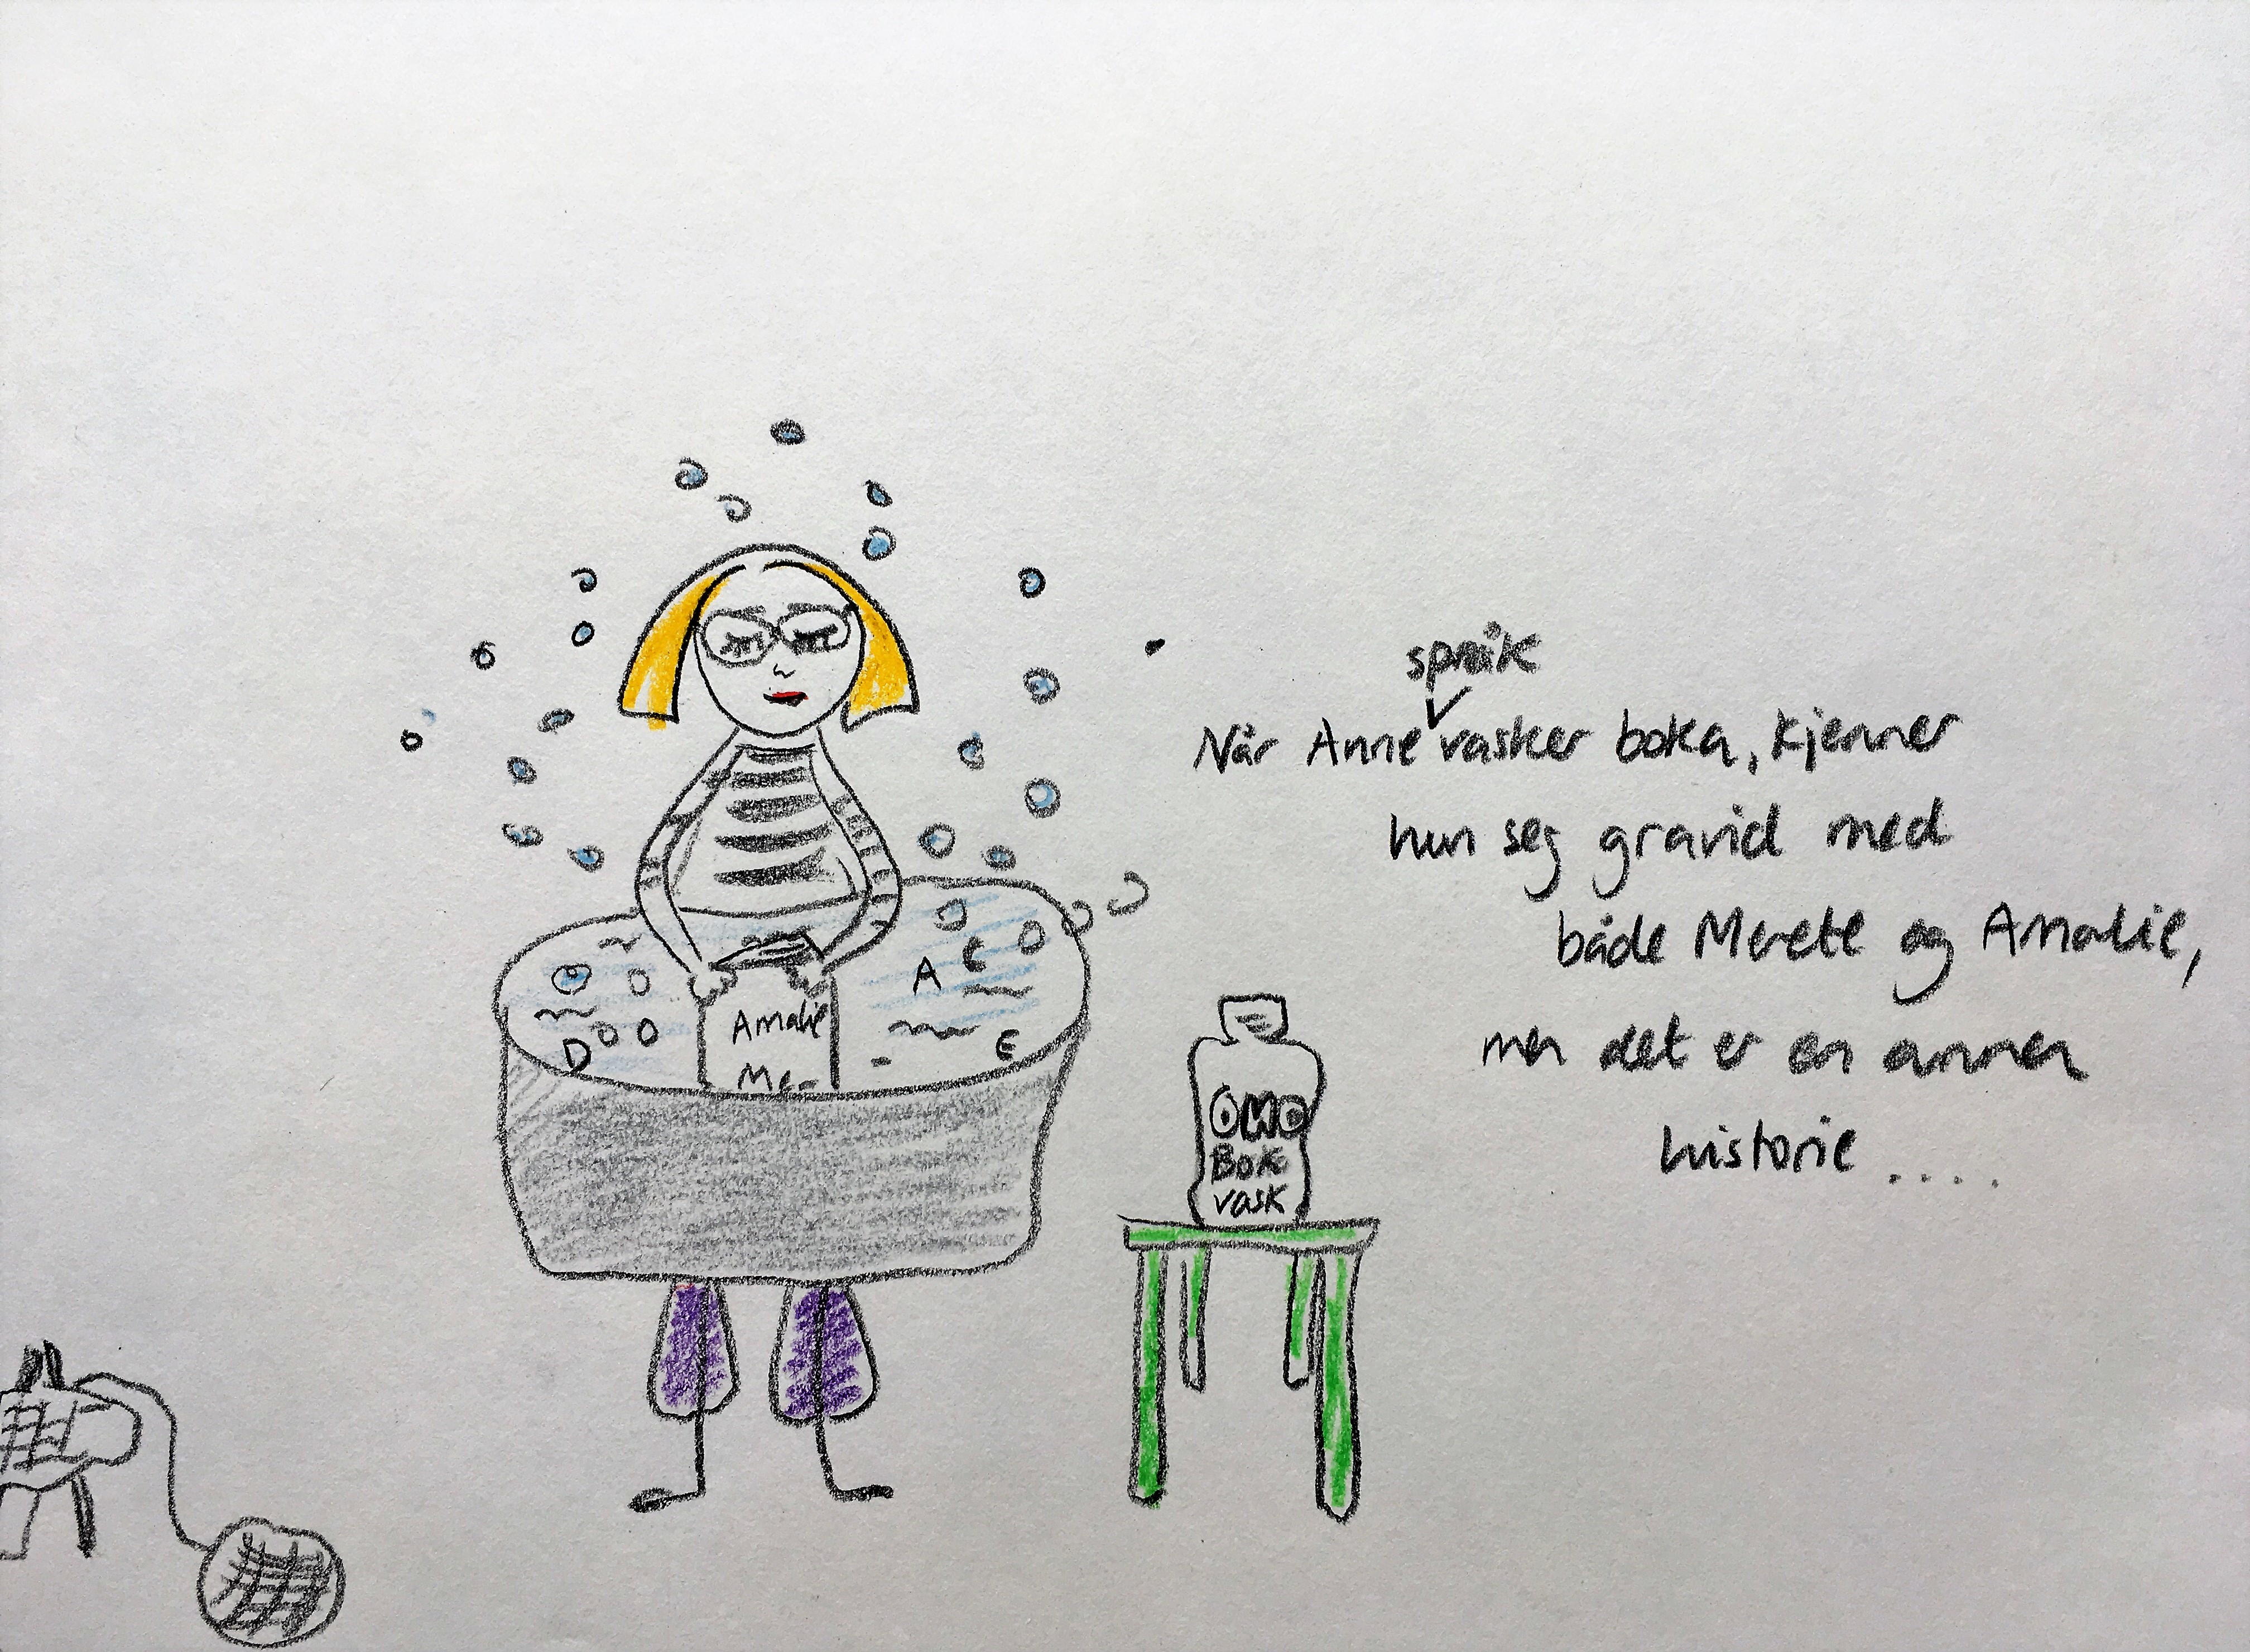 språk
Når Anne vasker boka, kjenner
hun seg gravid med
både Merete og Amalie,
men det er en annen
historie ....
A E
D E
Amalie
Me-
OMO
BOK
vask